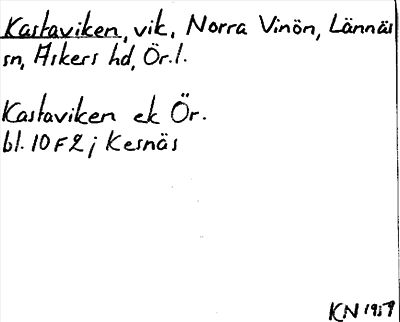 Kastaviken, vik, Norra Vinön, Lännäs
sn, Askers hd, Ör.l.
Kastaviken ek Ör.
bl. 10F2j Kesnäs
KN 1957